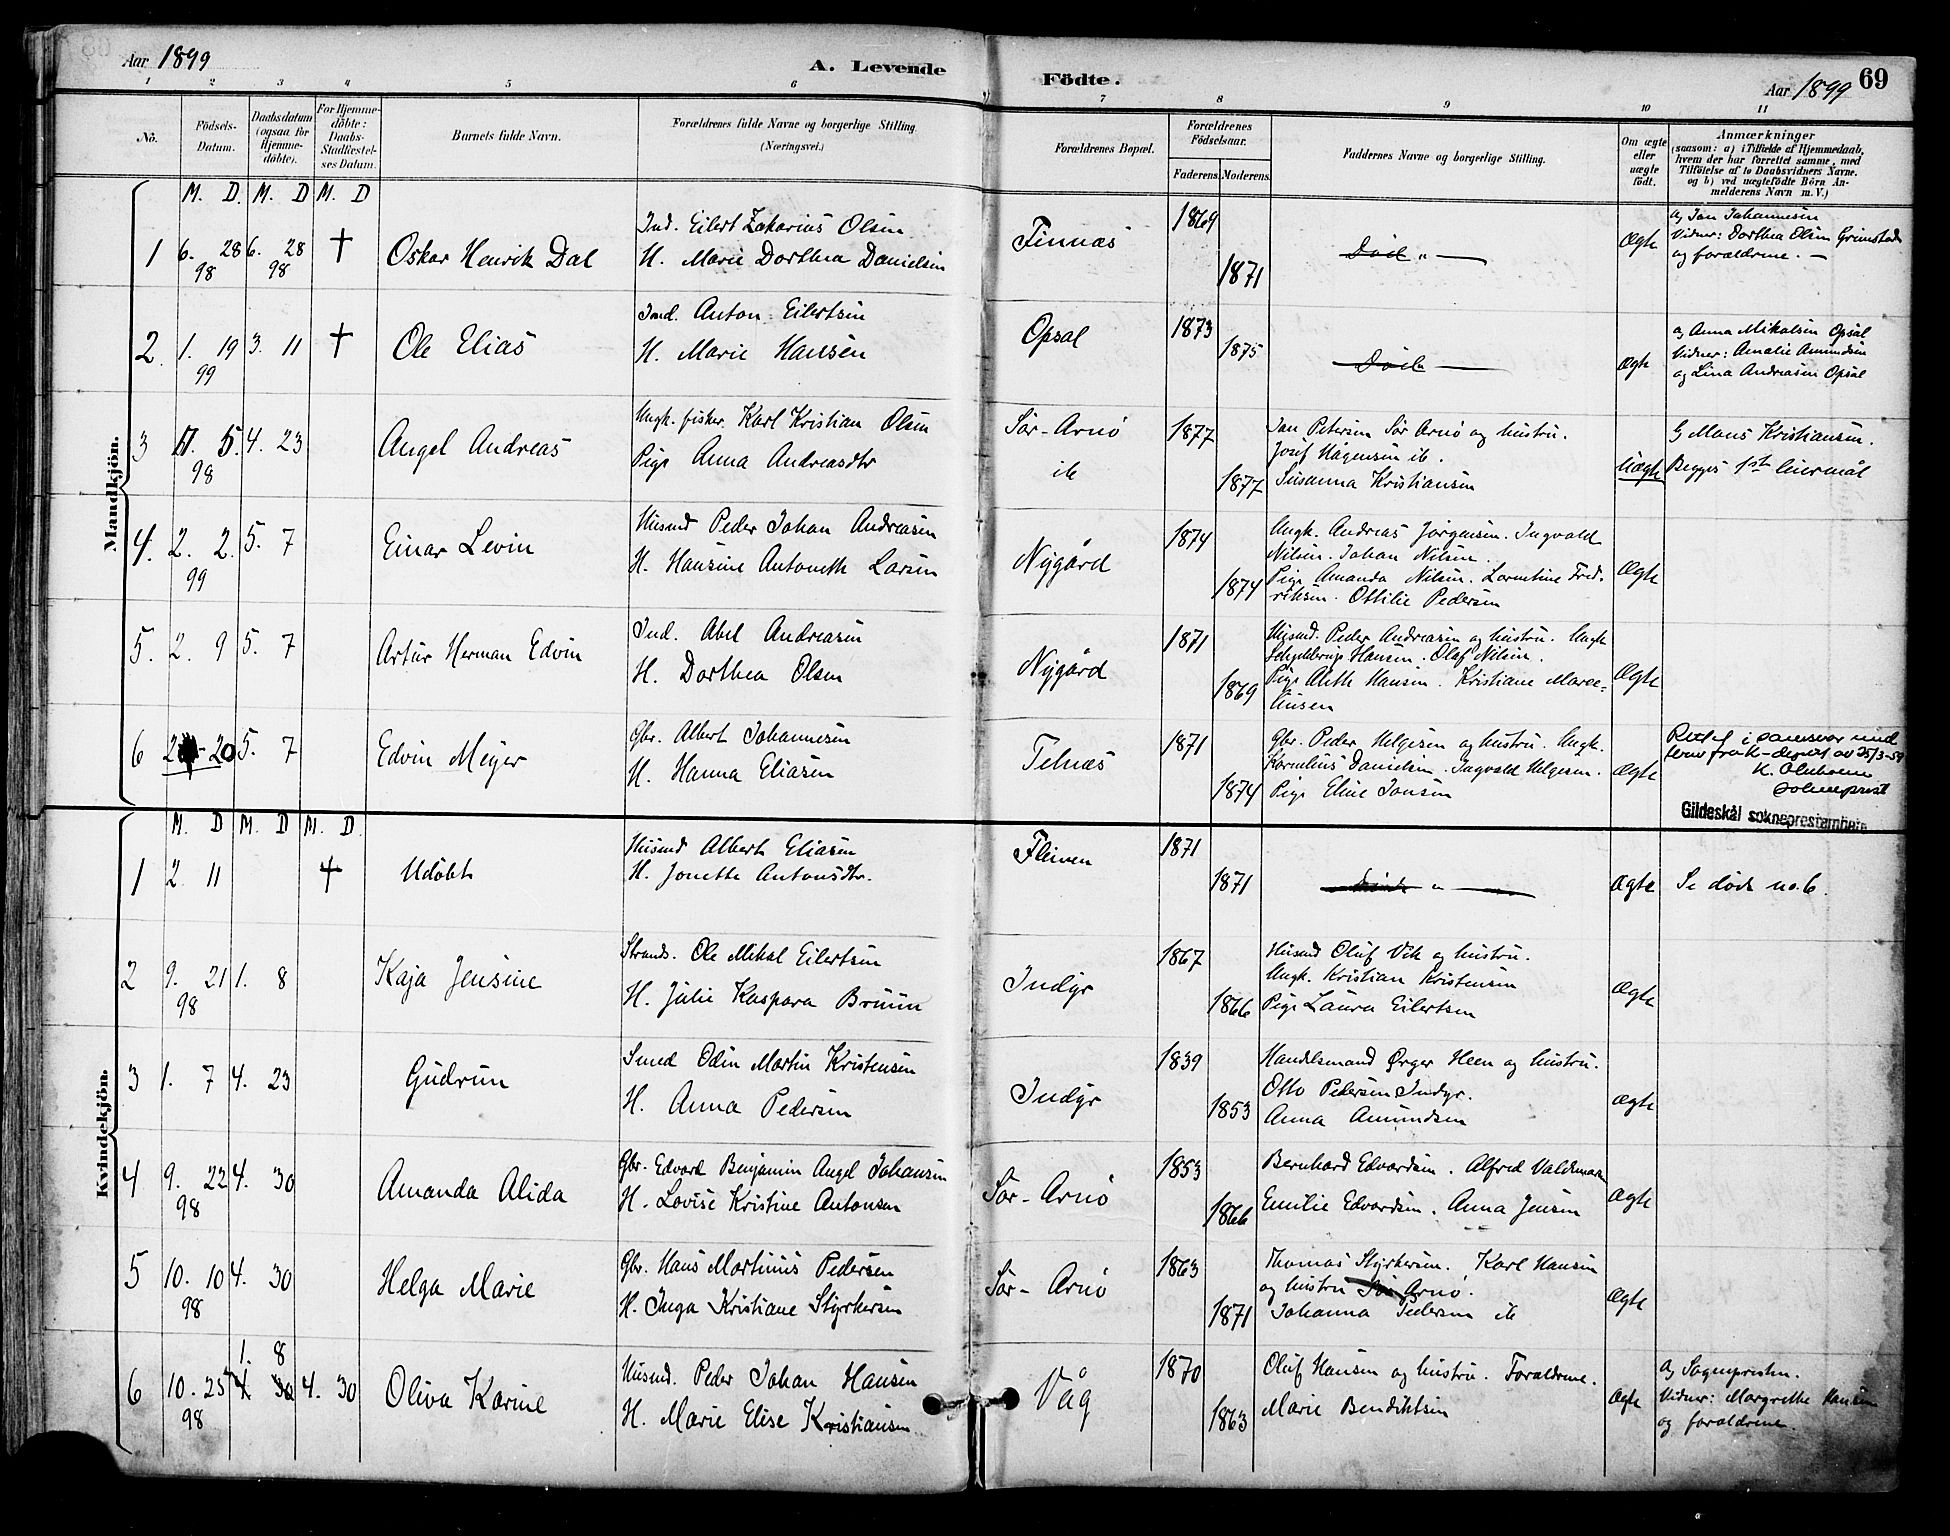 Aar 1899
A. Levende
Födte.
Aar 1899
69
1 2 3 4 5 6 7 8 9 10 11
No.
Födsels-
Datum.
Daabsdatum
(ogsaa for
Hjemme-
döbte).
For Hjemme-
döbte:
Daabs-
Stadfæstel-
ses Datum.
Barnets fulde Navn.
Forældrenes fulde Navne og borgerlige Stilling.
(Næringsvei.)
Forældrenes Bopæl.
Forældrenes
Födselsaar.
Faderens. Moderens.
Faddernes Navne og borgerlige Stilling.
Om ægte
eller
uægte
födt.
Anmærkninger
(saasom: a) i Tilfælde af Hjemmedaab,
hvem der har forrettet samme, med
Tilföielse af to Daabsvidners Navne.
og b) ved uægtefödte Börn An-
melderens Navn m. V.)
Mandkjön.
M. D. M. D M. D
1 6. 28 6. 28 †
98 98
Oskar Henrik Dal
Ind. Eilert Zakarius Olsen
H. Marie Dorthea Danielsen
Finnæs
1869
1871
Död " —
Ægte
a, Jan Johannesen
Vidner: Dorthea Olsen Grimstad
og forældrene. —
2. 1. 19 3. 11 †
99
Ole Elias
Ind. Anton Eilertsen
H. Marie Hansen
Opsal
1873
1875
Ægte
a, Anna Mikalsen Opsal
Vidner: Amalie Amundsen
og Lina Andreasen Opsal
3 11. 5. 4. 23
98
Angel Andreas
Ungk. fisker. Karl Kristian Olsen
Pige Anna Andreasdtr
Sør-Arnø
ib
1877
1877
Jan Petersen Sør Arnø og hustru.
Josef Hagensen ib.
Susanna Kristiansen
Uægte
Mons Kristiansen.
Begges 1ste leiermål
4. 2. 2. 5. 7
99
Einar Levin
Husmd Peder Johan Andreasen
H. Hansine Antonette Larsen
Nygård
1874
1874
Ungk. Andreas Jørgensen. Ingvald
Nilsen. Johan Nilsen.
Pige Amanda Nilsen. Lorentine Fred-
riksen. Ottilie Pedersen
Ægte
5. 2. 9 5. 7
Artur Herman Edvin
Ind. Abel Andreasen
H. Dorthea Olsen
Nygård
1871
1869
Husmd. Peder Andreasen og hustru. Ungk
Hansen. Olaf Nilsen.
Pige Aleth Hansen. Kristiane Marce-
liusen
Ægte
6 2 - 20 5. 7
Edvin Meyer
Gbr. Albert Johannesen
H. Hanna Eliasen
Telnæs
1871
1874
Gbr. Peder Helgesen og hustru. Ungk.
Kornelius Danielsen. Ingvald Helgesen.
Pige Eline Jansen
Ægte
Rettet i samsvar med
25/3-59
K.
sokneprest
Gildeskål sokneprestembete
Kvindekjön.
M. D M. D M. D.
1 2. 11 †
Udöbt
Husmd Albert Eliasen
H. Jonette Antonsdtr.
Fleinen
1871
1871
Ægte
Se døde no. 6.
2 9. 21 1. 8
98
Kaja Jensine
Strands. Ole Mikal Eilertsen
H. Julie Kaspara Bruun
Indyr
1867
1866
Husmd Oluf Vik og hustru.
Ungk. Kristian Kristensen
Pige Laura Eilertsen
Ægte
3 1. 7 4. 23
Gudrun
Smed Odin Martin Kristensen
H. Anna Pedersen
Indyr
1839
1853
Handelsmand Ørger Heen og hustru.
Otto Pedersen Indyr.
Anna Amundsen
Ægte
4 9. 22 4. 30
98
Amanda Alida
Gbr. Edvard Benjamin Angel Johansen
H. Lovise Kristine Antonsen
Sør-Arnø
1853
1866
Bernhard Edvardsen. Alfred Valdemar
Emilie Edvardsen. Anna Jensen
Ægte
5 10. 10 4. 30
98
Helga Marie
Gbr. Hans Martinus Pedersen
H. Inga Kristiane Styrkersen
Sør-Arnø
1863
1871
Thomas Styrkersen. Karl Hansen
og hustru Sør Arnø.
Johanna Pedersen ib
Ægte
1. 8
6 10. 25 4. 30 4. 30
98
Oliva Karine
Husmd. Peder Johan Hansen
H. Marie Elise Kristiansen
Våg
1870
1863
Oluf Hansen og hustru. Forældrene.
Marie Bendiktsen
Ægte
a, Sognepresten.
Vidner: Margrethe Hansen
og forældrene.